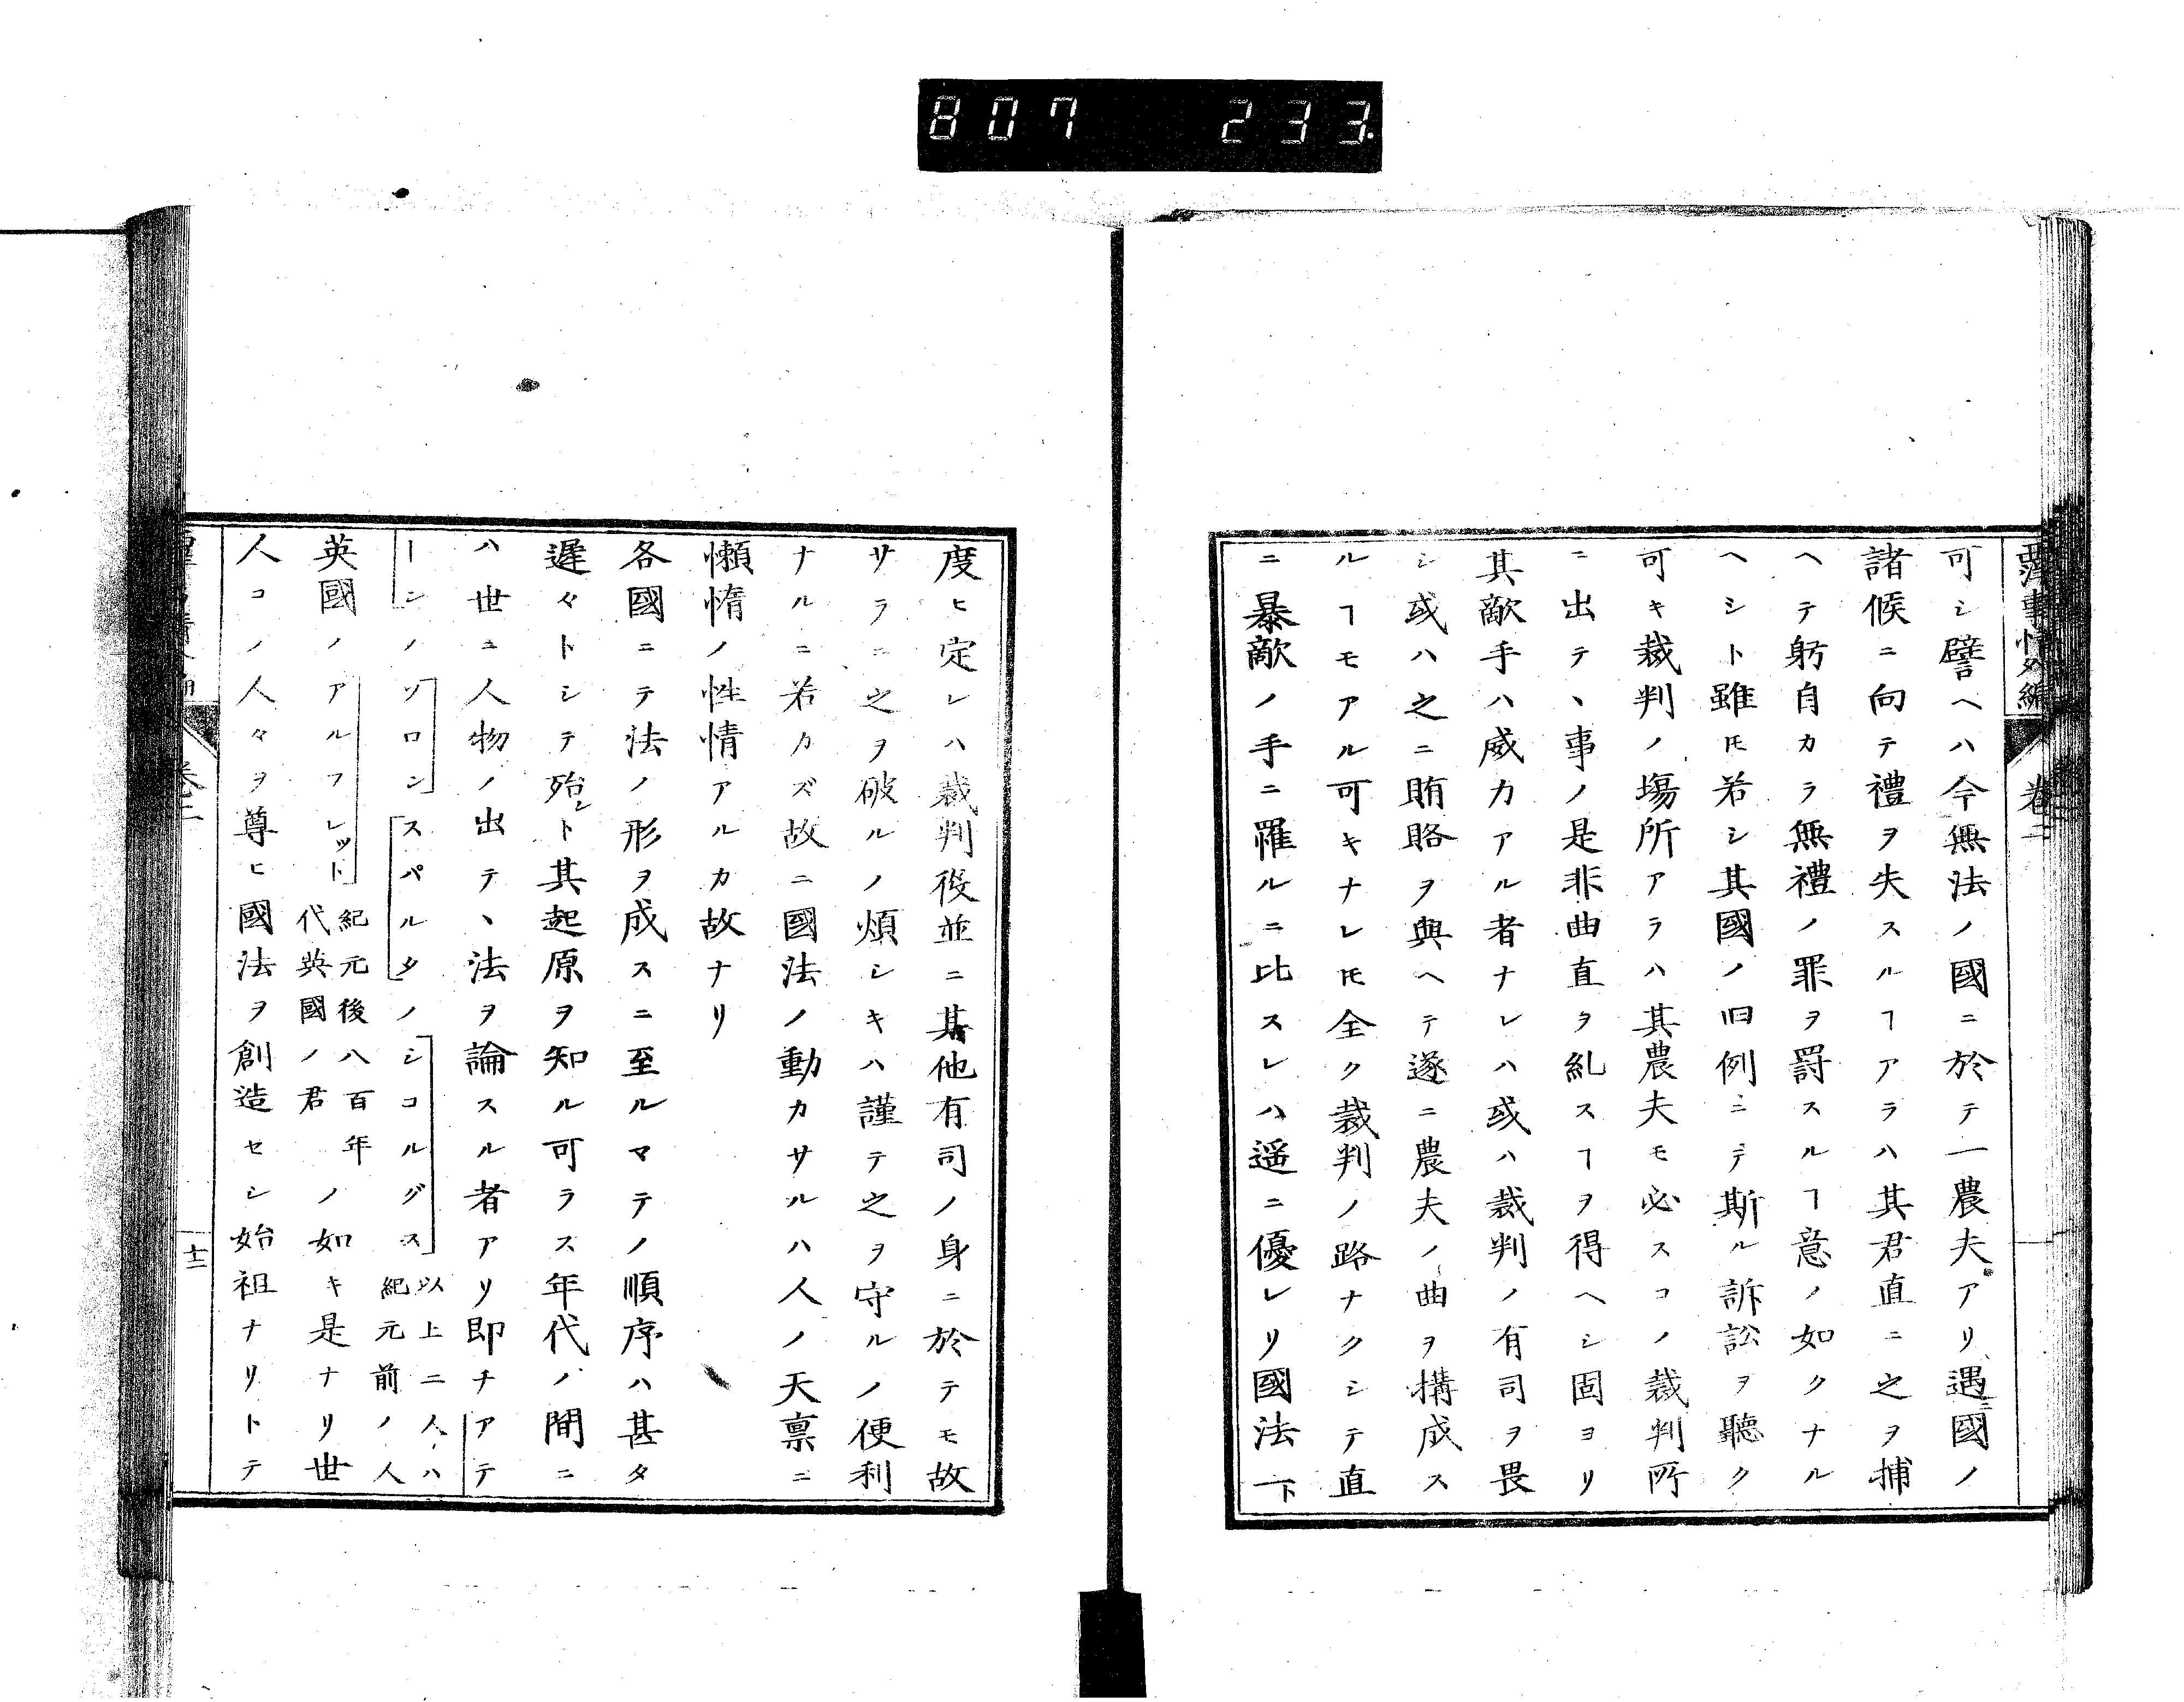 807 233.
西洋事情外編 卷二
可シ譬ヘハ今無法ノ國ニ於テ一農夫アリ遇國ノ
諸候ニ向テ禮ヲ失スルヿアラハ其君直ニ之ヲ捕
ヘテ躬自カラ無禮ノ罪ヲ罸スルヿ意ノ如クナル
ヘシト雖𪜈若シ其國ノ旧例ニテ斯ル訴訟ヲ聽ク
可キ裁判ノ塲所アラハ其農夫モ必スコノ裁判所
ニ出テヽ事ノ是非曲直ヲ糺スヿヲ得ヘシ固ヨリ
其敵手ハ威力アル者ナレハ或ハ裁判ノ有司ヲ畏
シ或ハ之ニ賄賂ヲ與ヘテ遂ニ農夫ノ曲ヲ構成ス
ルヿモアル可キナレ𪜈全ク裁判ノ路ナクシテ直
ニ暴敵ノ手ニ罹ルニ比スレハ遥ニ優レリ國法一下
度ヒ定レハ裁判役並ニ其他有司ノ身ニ於テモ故
サラニ之ヲ破ルノ煩シキハ謹テ之ヲ守ルノ便利
ナルニ若カズ故ニ國法ノ動カサルハ人ノ天禀ニ
懶惰ノ性情アルカ故ナリ
各國ニテ法ノ形ヲ成スニ至ルマテノ順序ハ甚タ
遲々トシテ殆ント其起原ヲ知ル可ラス年代ノ間ニ
ハ世ニ人物ノ出テヽ法ヲ論スル者アリ即チアテ
ーンノソロンスパルタノシコルグス以上二人ハ
紀元前ノ人
英國ノアルフレット紀元後八百年
代英國ノ君ノ如キ是ナリ世
人コノ人々ヲ尊ヒ國法ヲ創造セシ始祖ナリトテ
卷二
十二